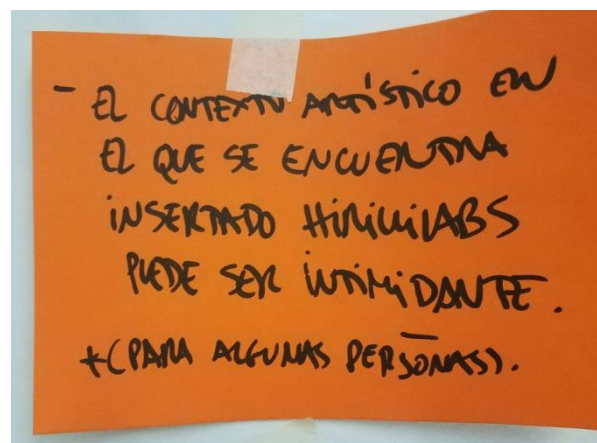 - EL CONTEXTO ARTÍSTICO EN
EL QUE SE ENCUENTRA
INSERTADO HIRIKILABS
PUEDE SER INTIMIDANTE.
*(PARA ALGUNAS PERSONAS).